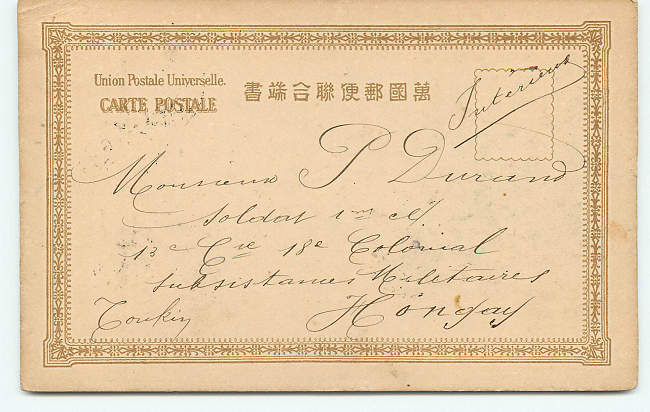 Union Postale Universelle.
CARTE POSTALE
書端合聯便郵國萬
Intérieur
Monsieur P. Durand
Soldat 1re Cl
13e Cie 18e Colonial
subsistances Militaires
Hongay
Tonkin